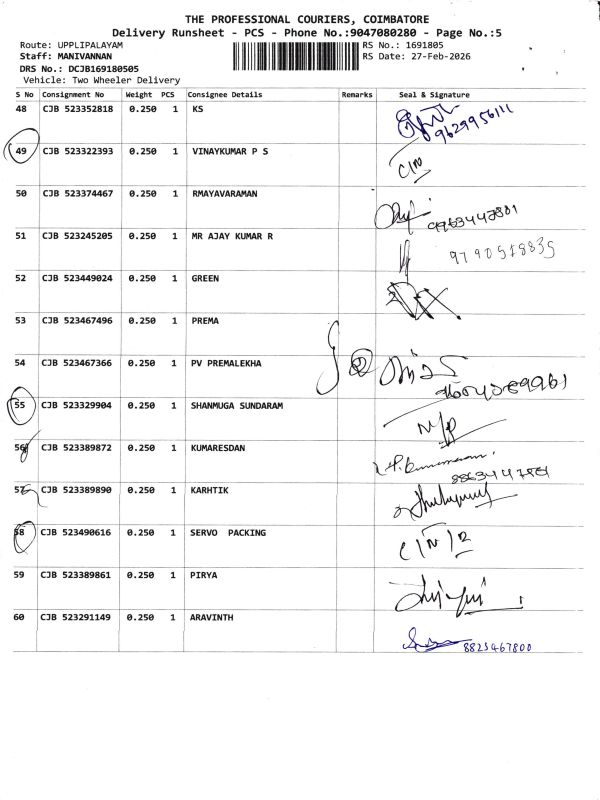 THE PROFESSIONAL COURIERS, COIMBATORE
Delivery Runsheet - PCS - Phone No.:9047080280 - Page No.:5
Route: UPPLIPALAYAM RS No.: 1691805
Staff: MANIVANNAN RS Date: 27-Feb-2026
DRS No.: DCJB169180505
Vehicle: Two Wheeler Delivery
S No Consignment No Weight PCS Consignee Details Remarks Seal & Signature
48 CJB 523352818 0.250 1 KS
9629956111
49 CJB 523322393 0.250 1 VINAYKUMAR P S
50 CJB 523374467 0.250 1 RMAYAVARAMAN
51 CJB 523245205 0.250 1 MR AJAY KUMAR R
9790518835
52 CJB 523449024 0.250 1 GREEN
53 CJB 523467496 0.250 1 PREMA
54 CJB 523467366 0.250 1 PV PREMALEKHA
55 CJB 523329904 0.250 1 SHANMUGA SUNDARAM
56 CJB 523389872 0.250 1 KUMARESDAN
57 CJB 523389890 0.250 1 KARHTIK
58 CJB 523490616 0.250 1 SERVO PACKING
59 CJB 523389861 0.250 1 PIRYA
60 CJB 523291149 0.250 1 ARAVINTH
8825467800